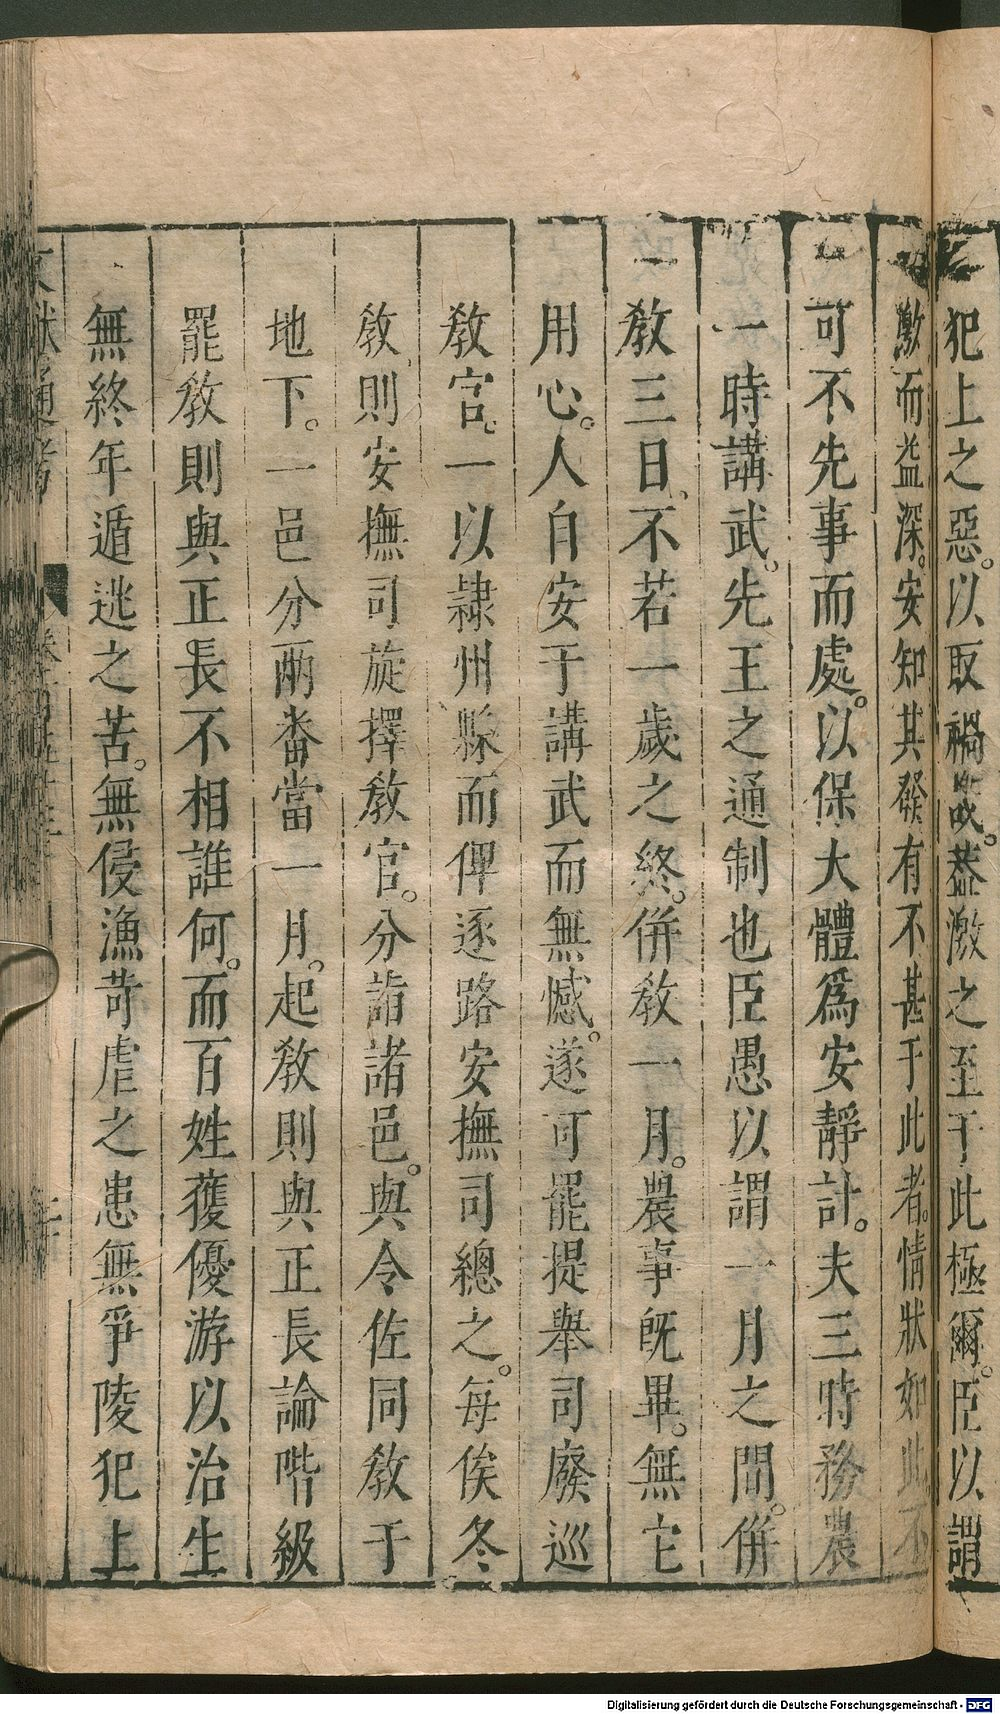 犯上之惡。以取禍敗。蓋激之至于此極爾。臣以謂
激而益深。安知其發有不甚于此者。情狀如此不
可不先事而處。以保大體爲安靜計。夫三時務農
一時講武。先王之通制也臣愚以謂一月之間。併
教三日。不若一歲之終。併教一月。農事旣畢。無它
用心。人自安于講武而無憾。遂可罷提舉司廢巡
教官。一以隷州縣而俾逐路安撫司總之。每俟冬
教則安撫司旋擇教官。分詣諸邑。與令佐同教于
地下。一邑分兩畨當一月。起教則與正長論階級
罷教則與正長不相誰何。而百姓獲優游以治生
無終年遁逃之苦。無侵漁苛虐之患無爭陵犯上
文獻通考 卷一百五十三
Digitalisierung gefördert durch die Deutsche Forschungsgemeinschaft - DFG